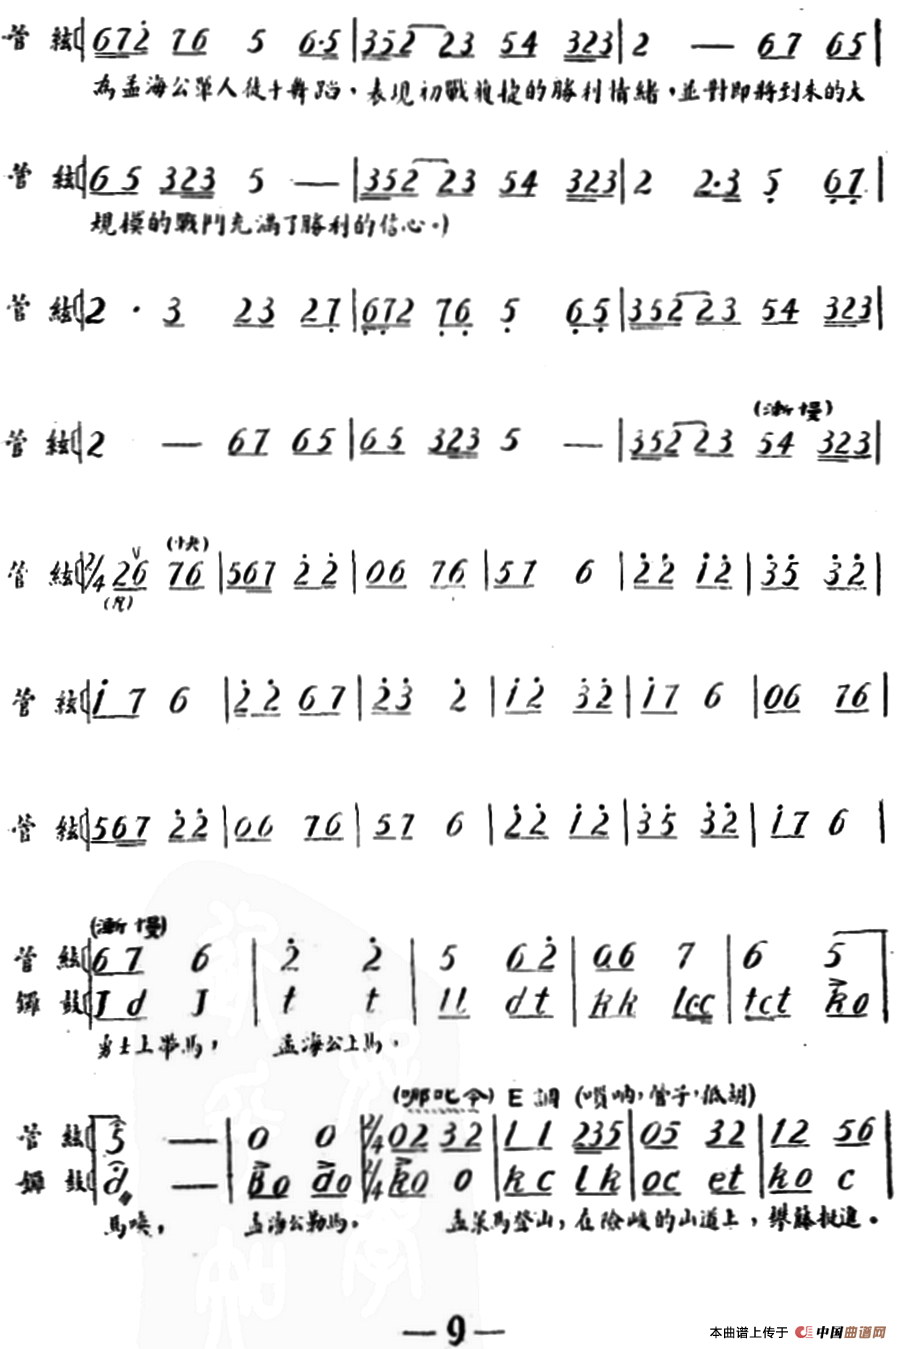 管 絃 672̇ 76 5 6·5 | 352 23 54 323 | 2 — 67 65 |
為孟海公單人徒十舞蹈,表現初戰獲捷的勝利情緒,並對即將到來的大
管 絃 65 323 5 — | 352 23 54 323 | 2 2·3 5̣ 6̣7̣ |
規模的戰鬥充滿了勝利的信心。)
管 絃 2 · 3 23 27̣ | 6̣7̣2 7̣6̣ 5̣ 6̣5̣ | 352 23 54 323 |
(漸慢)
管 絃 2 — 67 65 | 65 323 5 — | 352 23 54 323 |
(快)
管 絃 2/4 26 76 | 567 2̇2̇ | 06 76 | 57 6 | 2̇2̇ 1̇2̇ | 3̇5̇ 3̇2̇ |
管 絃 1̇7 6 | 2̇2̇ 67 | 2̇3̇ 2̇ | 1̇2̇ 3̇2̇ | 1̇7 6 | 06 76 |
管 絃 567 2̇2̇ | 06 76 | 57 6 | 2̇2̇ 1̇2̇ | 3̇5̇ 3̇2̇ | 1̇7 6 |
(漸慢)
管 絃 67 6 | 2̇ 2̇ | 5 62̇ | 06 7 | 6 5
鑼 鼓 J d J | t t | ll dt | kk lcc | tct ko
勇士上帶馬, 孟海公上馬。
(哪叱令) E調 (嗩吶,管子,低胡)
管 絃 5 — | 0 0 | 2/4 02 32 | 11 235 | 05 32 | 12 56 |
鑼 鼓 d — | Bo do | 2/4 ko 0 | kc lk | oc et | ko c |
馬嘯, 孟海公勒馬。 孟策馬登山,在險峻的山道上,攀藤挺進。
— 9 —
本曲谱上传于 中国曲谱网